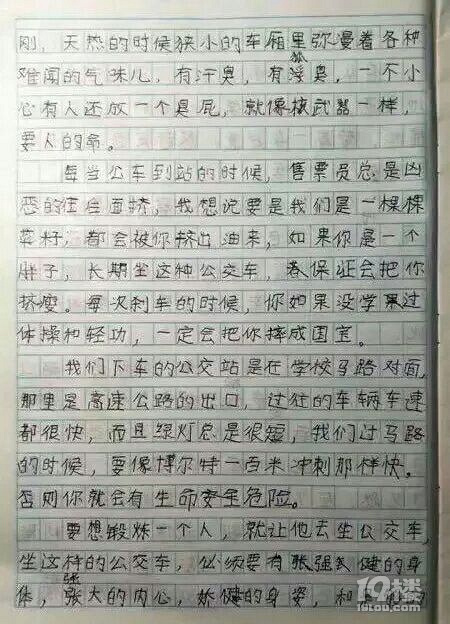 刚，天热的时候狭小的车厢里弥漫着各种
难闻的气味儿，有汗臭，有狐臭，一不小
心有人还放一个臭屁，就像核武器一样，
要人的命。
每当公车到站的时候，售票员总是凶
恶的往后面挤，我想说要是我们是一棵棵
菜籽，都会被你挤出油来，如果你是一个
胖子，长期坐这种公交车，我保证会把你
挤瘦。每次刹车的时候，你如果没学过
体操和轻功，一定会把你摔成国宝。
我们下车的公交站是在学校马路对面，
那里是高速公路的出口，过往的车辆车速
都很快，而且绿灯总是很短，我们过马路
的时候，要像博尔特一百米冲刺那样快。
否则你就会有生命安全危险。
要想锻炼一个人，就让他去坐公交车，
坐这样的公交车，必须要有强健的身
体，强大的内心，娇健的身姿，和
19楼
19lou.com